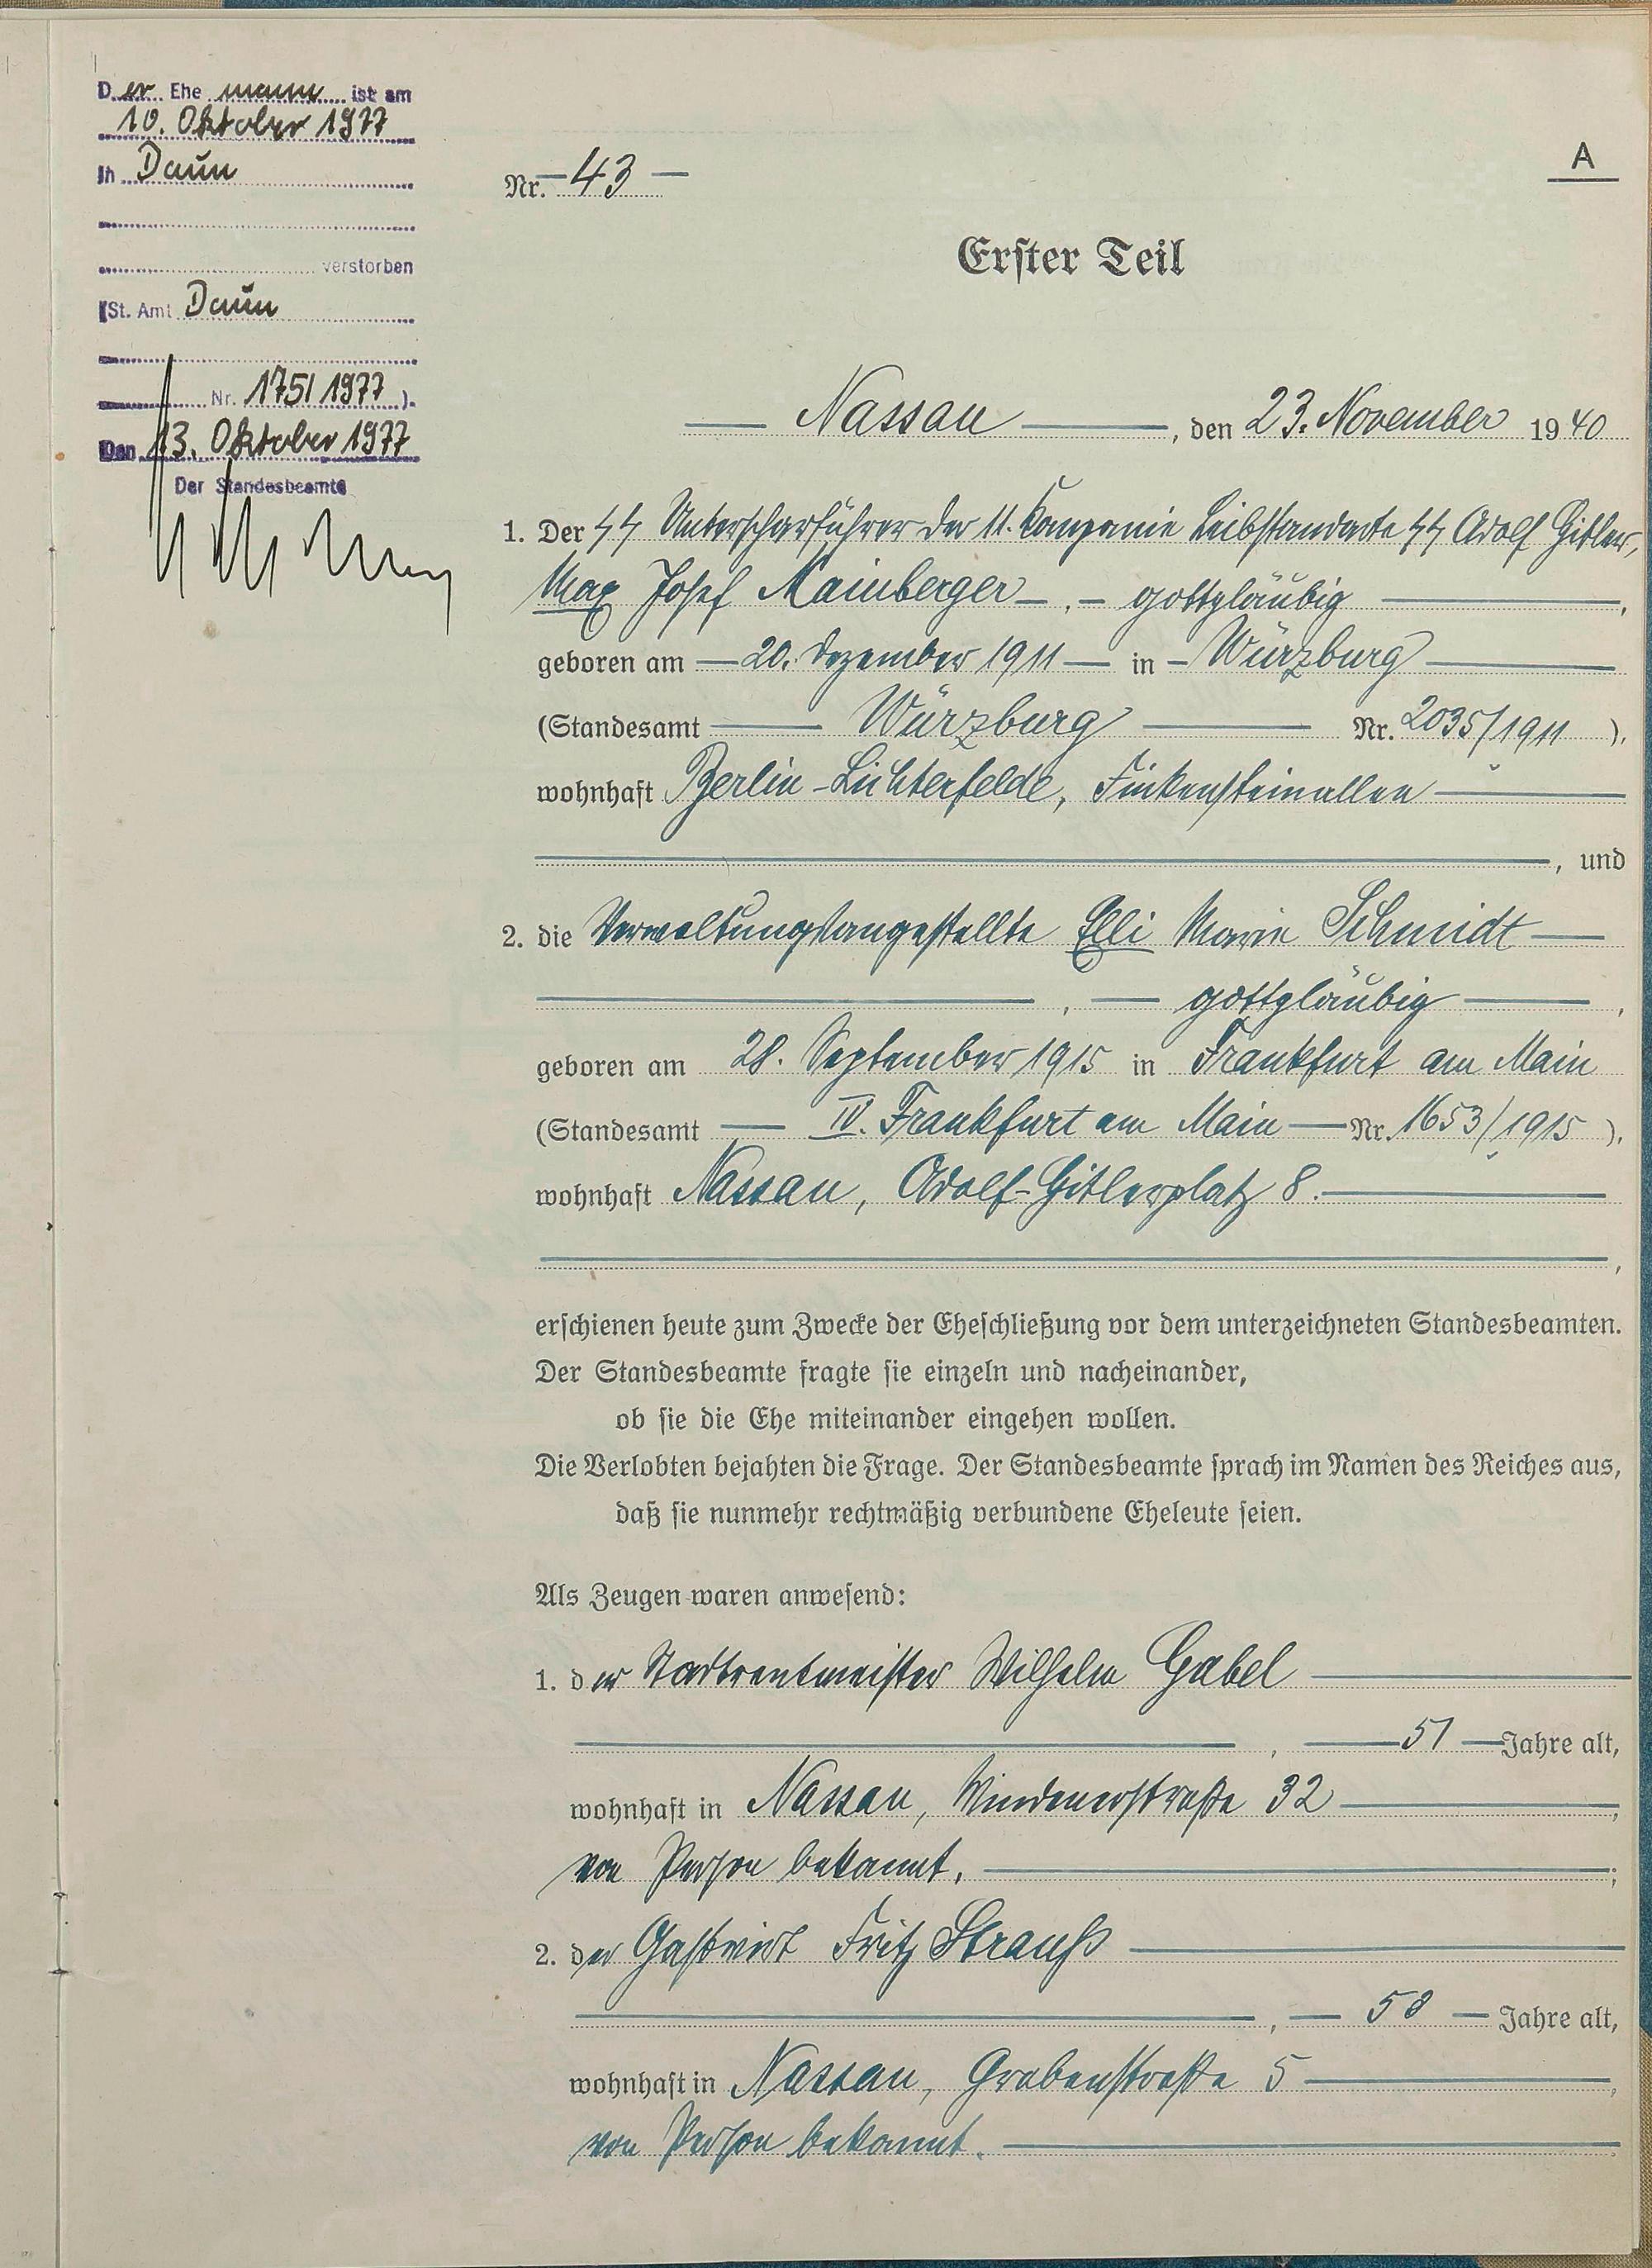 Der Ehe mann ist am
10. Oktober 1977
In Daun
verstorben
(St. Amt Daun
Nr. 175/1977 ).
Den 13. Oktober 1977
Der Standesbeamte
A
Nr. 43
Erster Teil
Nassau, den 23. November 1940
1. Der SS Unterscharführer der 11. Kompanie Leibstandarte SS Adolf Hitler,
Max Josef Mainberger, gottgläubig,
geboren am 20. Dezember 1911 in Würzburg
(Standesamt Würzburg Nr. 2035/1911 ),
wohnhaft Berlin-Lichterfelde, Finkensteinallee
, und
2. die Verwaltungsangestellte Elli Marie Schmidt
, gottgläubig,
geboren am 28. September 1915 in Frankfurt am Main
(Standesamt IV. Frankfurt am Main Nr. 1653/1915 ),
wohnhaft Nassau, Adolf-Hitlerplatz 8.
,
erschienen heute zum Zwecke der Eheschließung vor dem unterzeichneten Standesbeamten.
Der Standesbeamte fragte sie einzeln und nacheinander,
ob sie die Ehe miteinander eingehen wollen.
Die Verlobten bejahten die Frage. Der Standesbeamte sprach im Namen des Reiches aus,
daß sie nunmehr rechtmäßig verbundene Eheleute seien.
Als Zeugen waren anwesend:
1. der Stadtrentmeister Wilhelm Gabel
, 51 Jahre alt,
wohnhaft in Nassau, Windenerstraße 32,
von Person bekannt.;
2. der Gastwirt Fritz Strauß
, 58 Jahre alt,
wohnhaft in Nassau, Grabenstraße 5,
von Person bekannt.